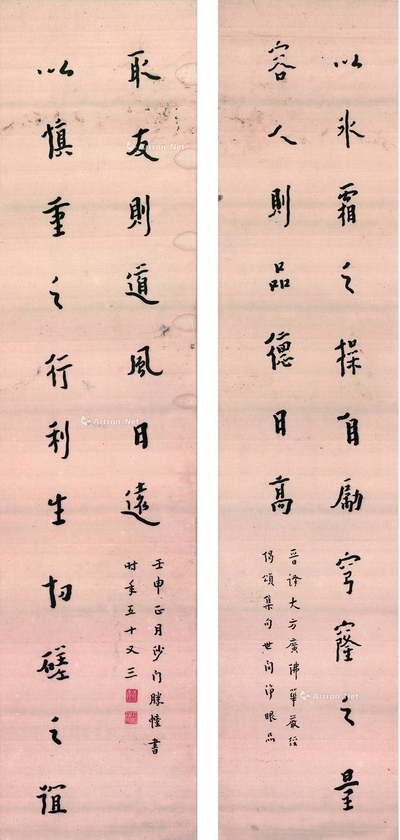 以氷霜之操自勵穹窿之量
容人則品德日高
晉譯大方廣佛華嚴經
偈頌集句世間淨眼品
以慎重之行利生切磋之誼
取友則道風日遠
壬申正月沙門勝幢書
時年五十又三
Artron.Net
Artron.Net
Artron.Net
Artron.Net